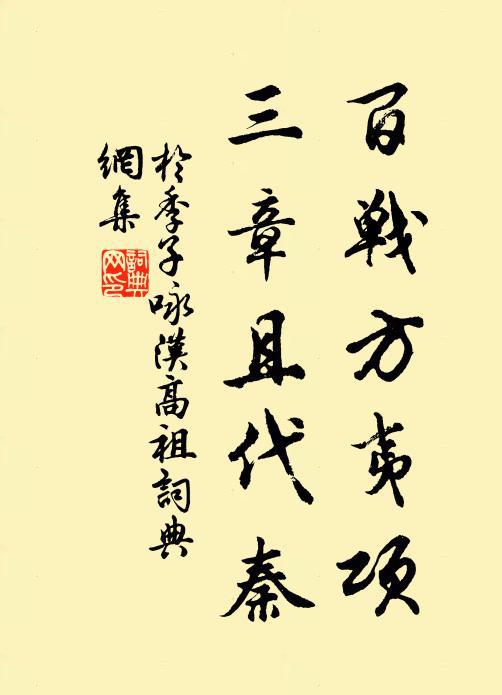 百戰方夷項
三章且代秦
於季子咏漢高祖詞典
網集
詞典
网印